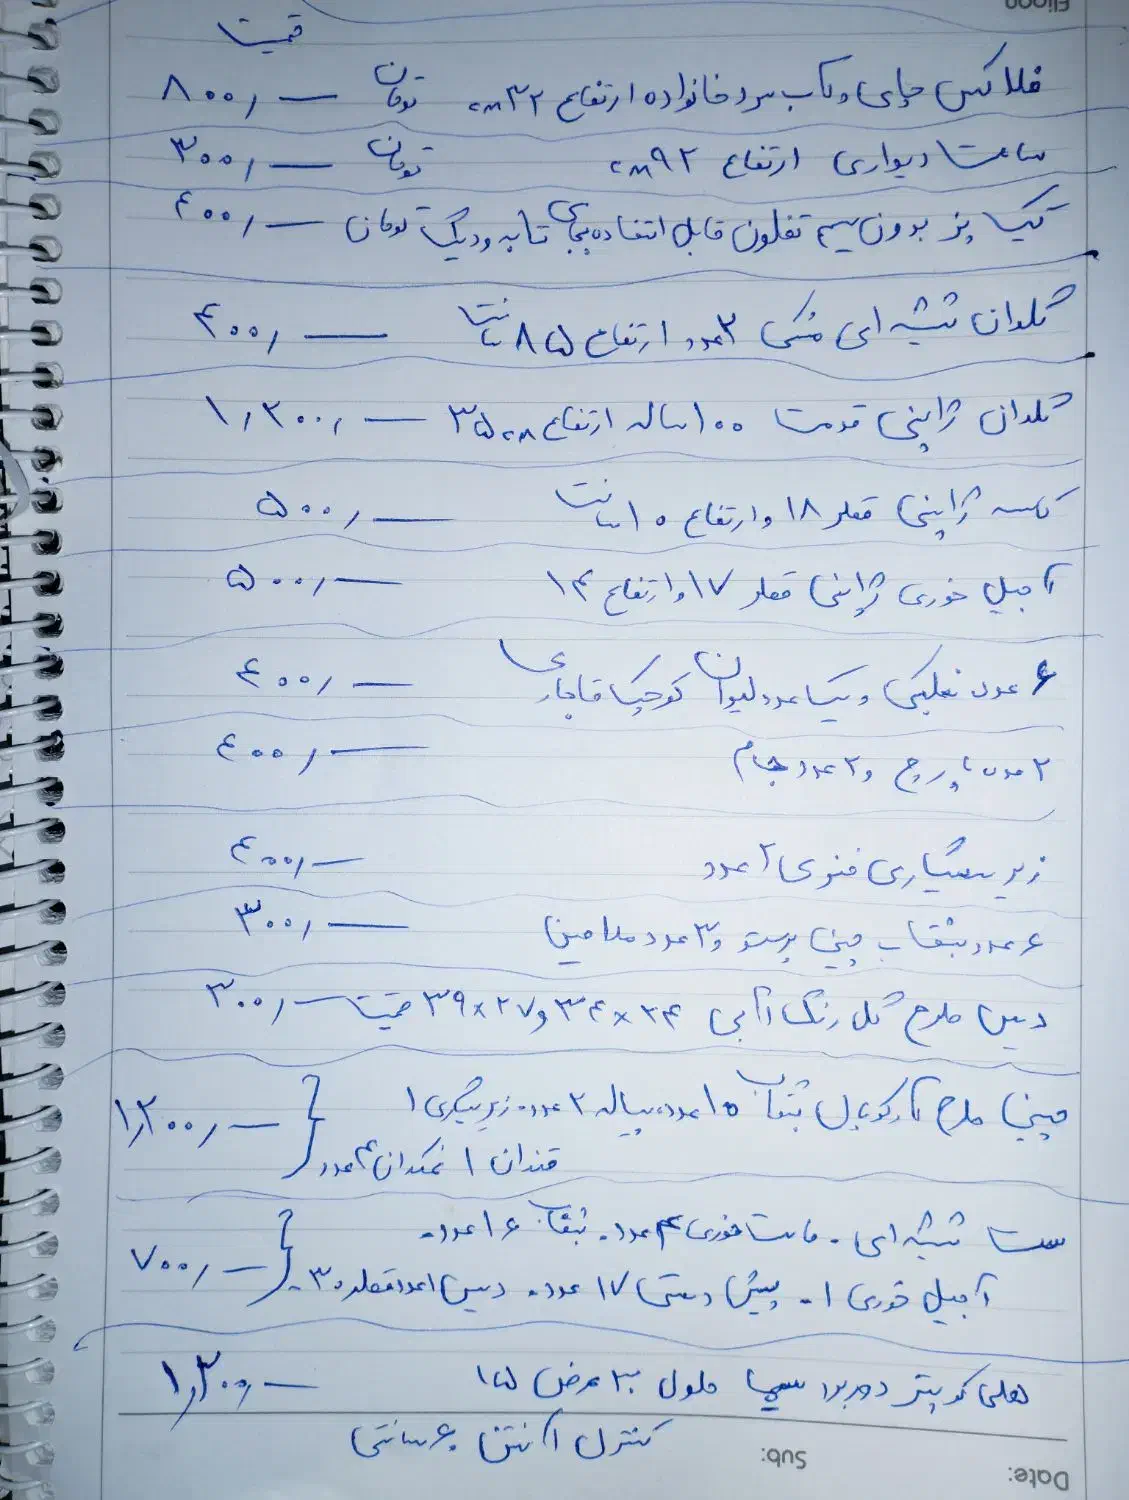 قیمت
فلاکس چای و آب سرد خانواده ارتفاع ۳۲ cm تومان — ۸۰۰٫
ساعت دیواری ارتفاع ۹۲ cm تومان — ۳۰۰٫
کیک پز بدون سیم تفلون قابل استفاده بجای تابه و دیگ تومان — ۴۰۰٫
گلدان شیشه ای مشکی ۲ عدد ارتفاع ۸۵ سانت — ۴۰۰٫
گلدان ژاپنی قدمت ۱۰۰ ساله ارتفاع ۳۵ cm — ۱٫۲۰۰٫
کاسه ژاپنی قطر ۱۸ و ارتفاع ۱۰ سانت — ۵۰۰٫
آجیل خوری ژاپنی قطر ۱۷ و ارتفاع ۱۴ — ۵۰۰٫
۶ عدد نعلبکی و یک عدد لیوان کوچک قاجاری — ۴۰۰٫
۲ عدد پارچ و ۲ عدد جام — ۴۰۰٫
زیر سیگاری ۲ عدد — ۴۰۰٫
۶ عدد بشقاب چینی و ۳ عدد ملامین — ۳۰۰٫
دیس طرح گل رنگ آبی ۲۴×۳۴ و ۲۷×۳۹ قیمت — ۳۰۰٫
چینی طرح بشقاب ۱۵ عدد، پیاله ۲ عدد. زیرسیگاری ۱
قندان ۱ نمکدان ۴ عدد — ۱٫۲۰۰٫
ست شیشه ای. ماست خوری ۴ عدد. بشقاب ۱۶ عدد.
آجیل خوری ۱. پیش دستی ۱۷ عدد. دیس ۱ عدد قطر ۳۰. — ۷۰۰٫
هلی کوپتر دوربرد طول ۳۰ عرض ۱۵ — ۱٫۳۰۰٫
کنترل آنتن ۶۰ سانتی
Sub:
Date: